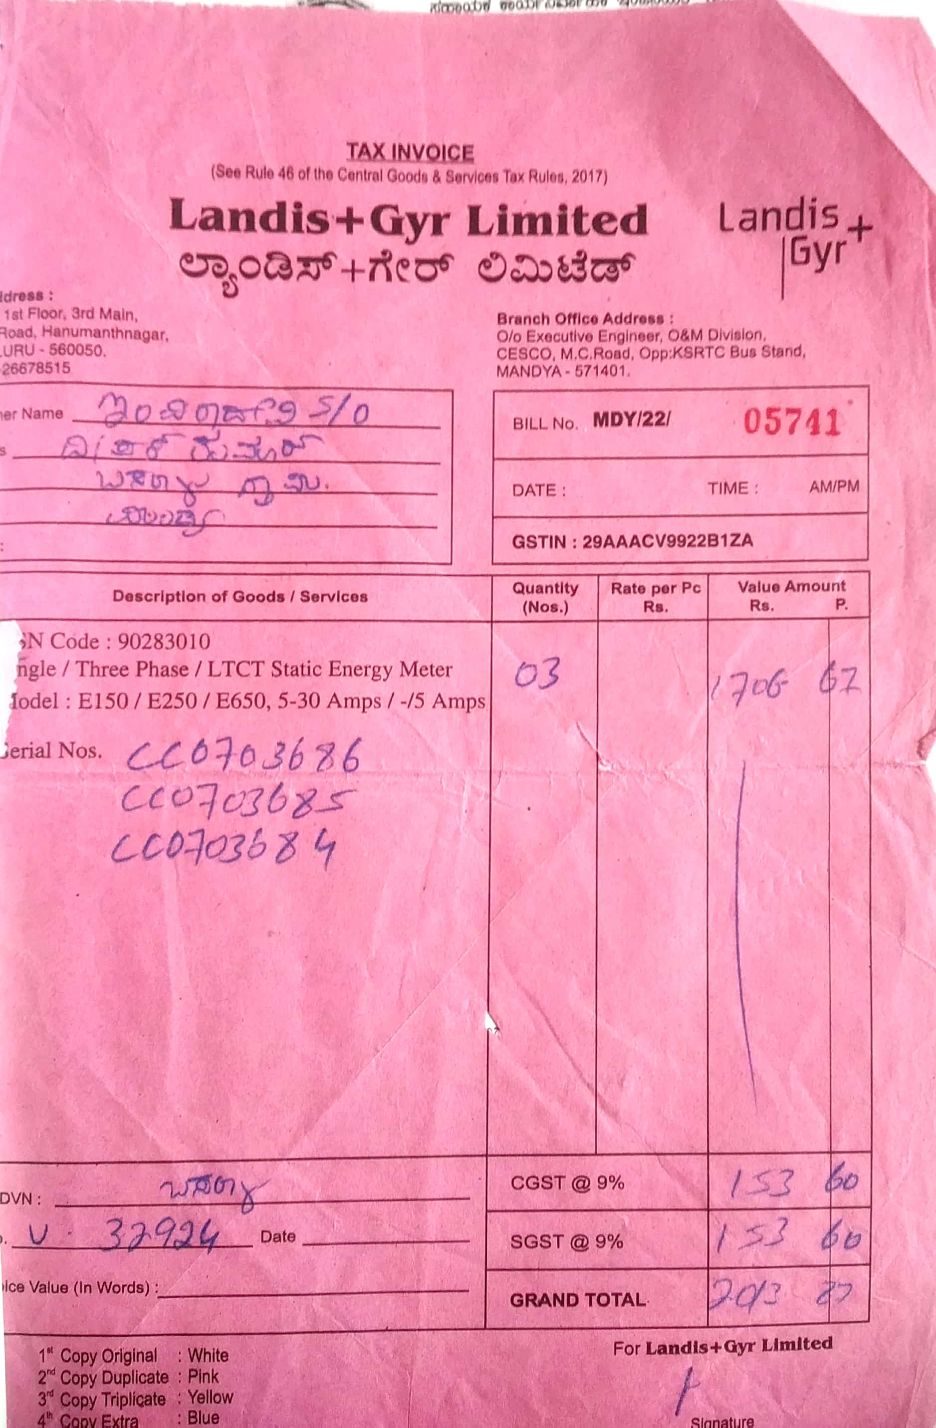 TAX INVOICE
(See Rule 46 of the Central Goods & Services Tax Rules, 2017)
Landis+Gyr Limited
Landis+
Gyr
ಲ್ಯಾಂಡಿಸ್+ಗೇರ್ ಲಿಮಿಟೆಡ್
ddress :
1st Floor, 3rd Main,
Road, Hanumanthnagar,
URU - 560050.
26678515
Branch Office Address :
O/o Executive Engineer, O&M Division,
CESCO, M.C.Road, Opp:KSRTC Bus Stand,
MANDYA - 571401.
er Name S/O
s
:
BILL No. MDY/22/ 05741
DATE : TIME : AM/PM
GSTIN : 29AAACV9922B1ZA
Description of Goods / Services Quantity (Nos.) Rate per Pc Rs. Value Amount Rs. P.
SN Code : 90283010
ngle / Three Phase / LTCT Static Energy Meter 03 1706 67
Model : E150 / E250 / E650, 5-30 Amps / -/5 Amps
Serial Nos. CC0703686
CC0703685
CC0703684
DVN :
CGST @ 9% 153 60
. V. 32924 Date
SGST @ 9% 153 60
ice Value (In Words) :
GRAND TOTAL 2013 87
For Landis+Gyr Limited
1st Copy Original : White
2nd Copy Duplicate : Pink
3rd Copy Triplicate : Yellow
4th Copy Extra : Blue
Signature